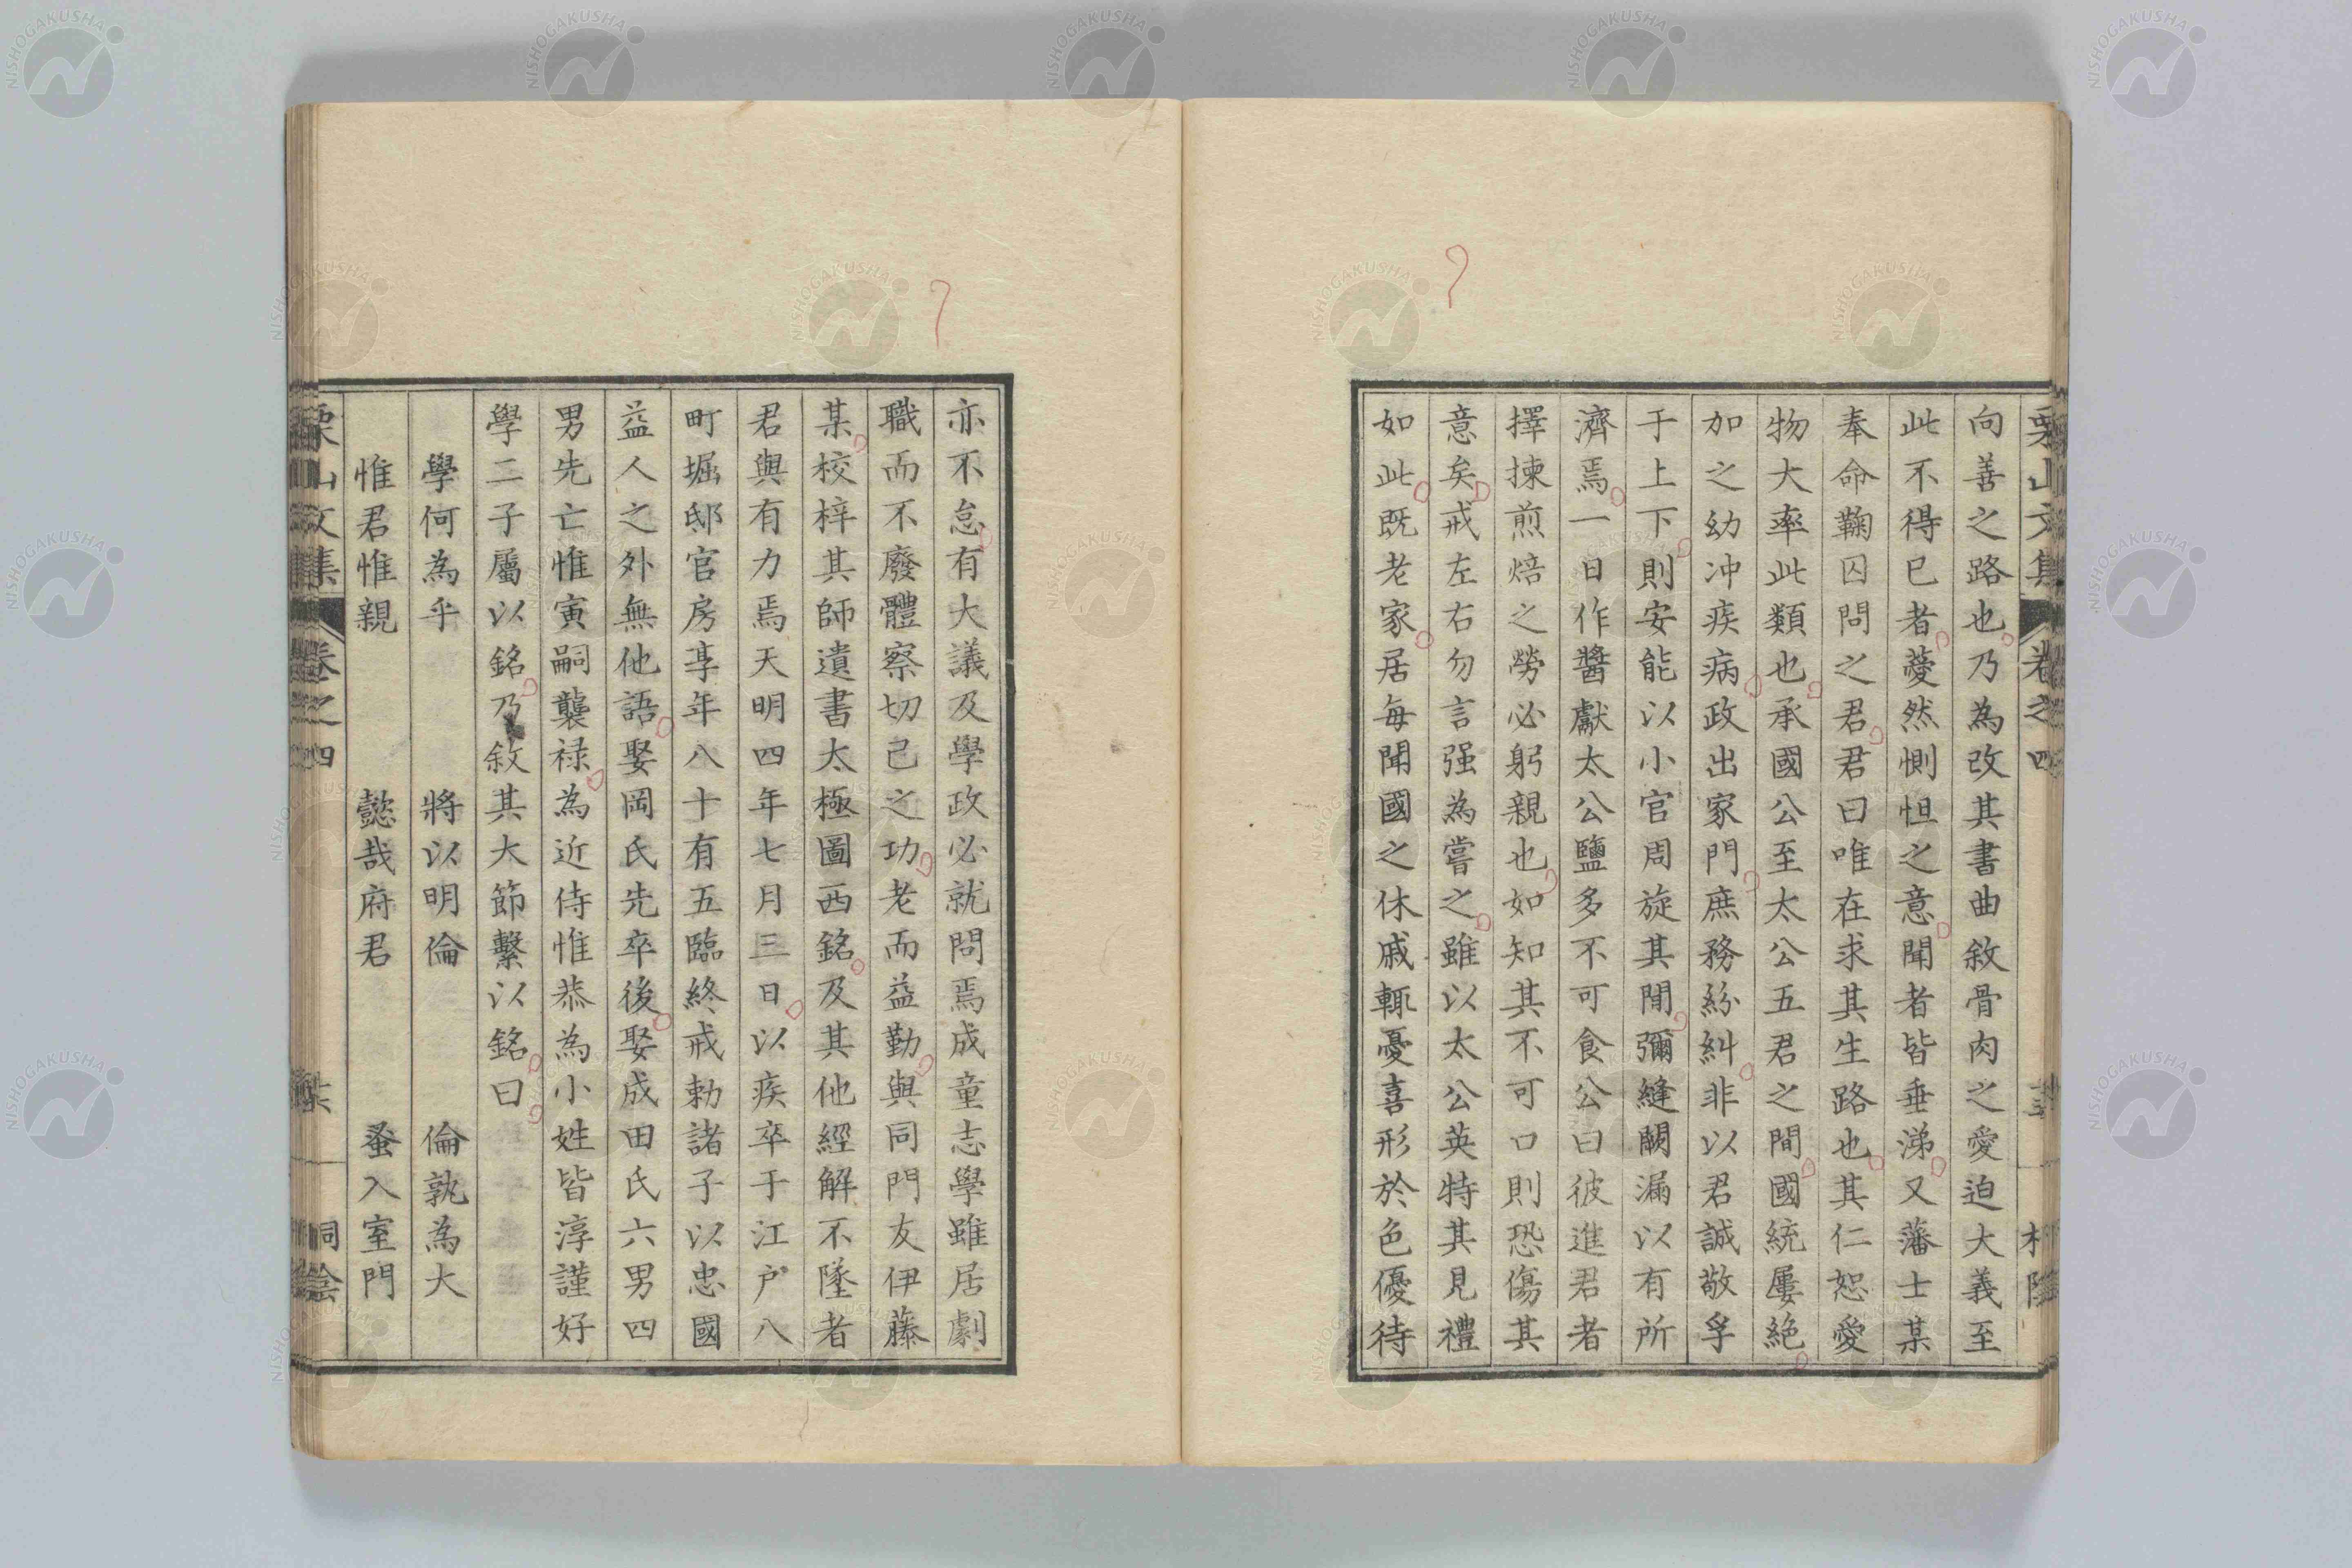 向善之路也乃為改其書曲敘骨肉之愛迫大義至
此不得已者藹然惻怛之意聞者皆垂涕又藩士某
奉命鞫囚問之君君曰唯在求其生路也其仁恕愛
物大率此類也承國公至太公五君之間國統屢絶
加之幼冲疾病政出家門庶務紛糾非以君誠敬孚
于上下則安能以小官周旋其間彌縫闕漏以有所
濟焉一日作醬獻太公鹽多不可食公曰彼進君者
擇揀煎焙之勞必躬親也如知其不可口則恐傷其
意矣戒左右勿言强為嘗之雖以太公英特其見禮
如此既老家居每聞國之休戚輒憂喜形於色優待
亦不怠有大議及學政必就問焉成童志學雖居劇
職而不廢體察切己之功老而益勤與同門友伊藤
某校梓其師遺書太極圖西銘及其他經解不墜者
君與有力焉天明四年七月三日以疾卒于江戶八
町堀邸官房享年八十有五臨終戒勅諸子以忠國
益人之外無他語娶岡氏先卒後娶成田氏六男四
男先亡惟寅嗣襲祿為近侍惟恭為小姓皆淳謹好
學二子屬以銘乃敘其大節繫以銘曰
學何為乎 將以明倫 倫孰為大
惟君惟親 懿哉府君 蚤入室門
栗山文集 卷之四